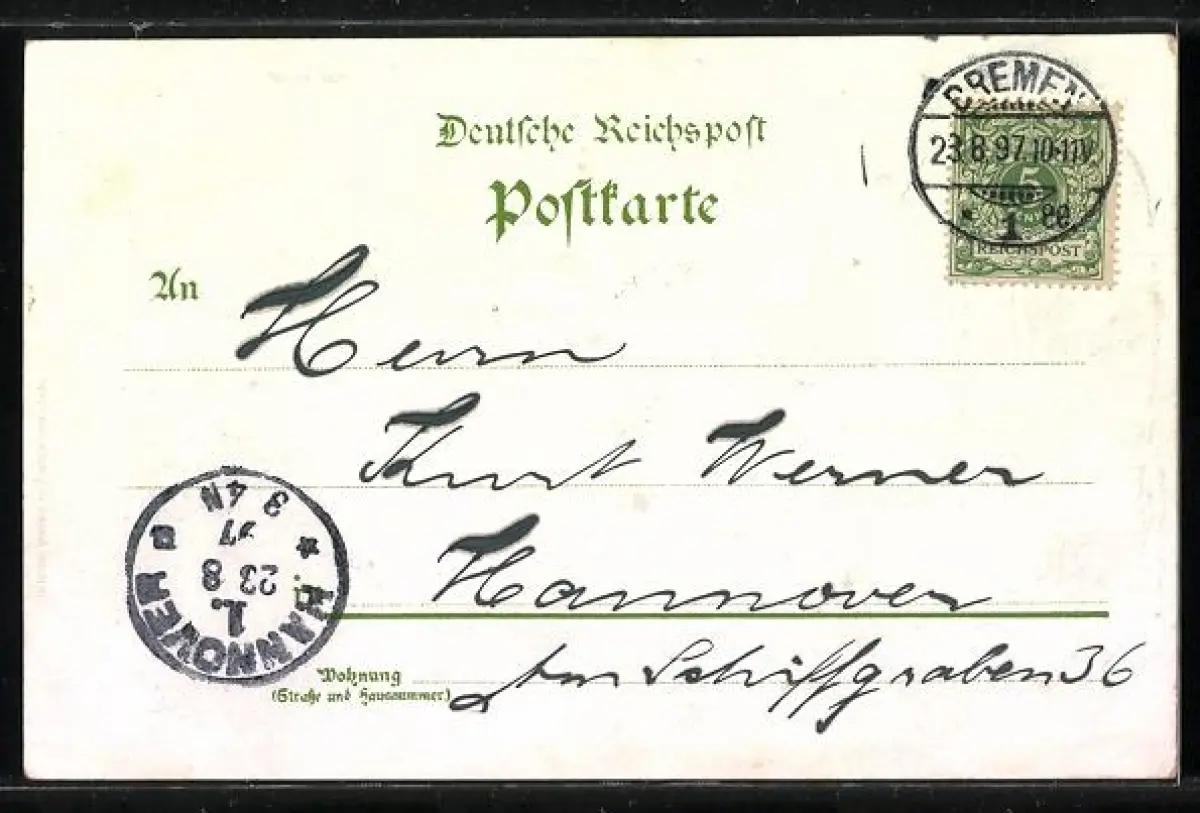 Deutsche Reichspost
Postkarte
BREMEN
23.8.97.10-11V.
* 1 *
5
REICHSPOST
An
Herrn
Kurt Werner
Hannover
Am Schiffgraben 36
Wohnung
(Straße und Hausnummer)
HANNOVER
1.
23 8
97
3-4N